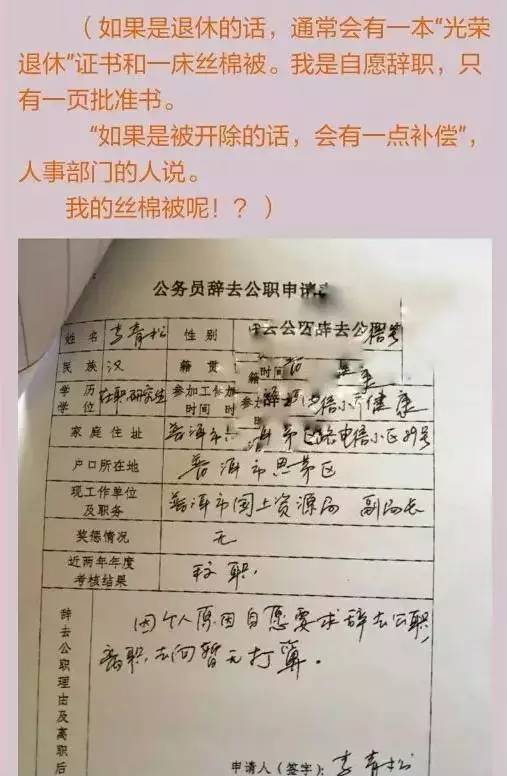 （如果是退休的话，通常会有一本“光荣
退休”证书和一床丝棉被。我是自愿辞职，只
有一页批准书。
“如果是被开除的话，会有一点补偿”，
人事部门的人说。
我的丝棉被呢！？）
公务员辞去公职申请
姓名 李青松 性别 公务员辞去公职
民族 汉 籍贯 籍 时间
学历 学位 在职研究生 参加工作 时间 健康
家庭住址 普洱市 电信小区29号
户口所在地 普洱市思茅区
现工作单位
及职务 普洱市国土资源局 副局长
奖惩情况 无
近两年年度
考核结果 称职.
辞去公职理由及离职后
因个人原因自愿要求辞去公职,
离职去向暂无打算.
申请人（签字）：李青松